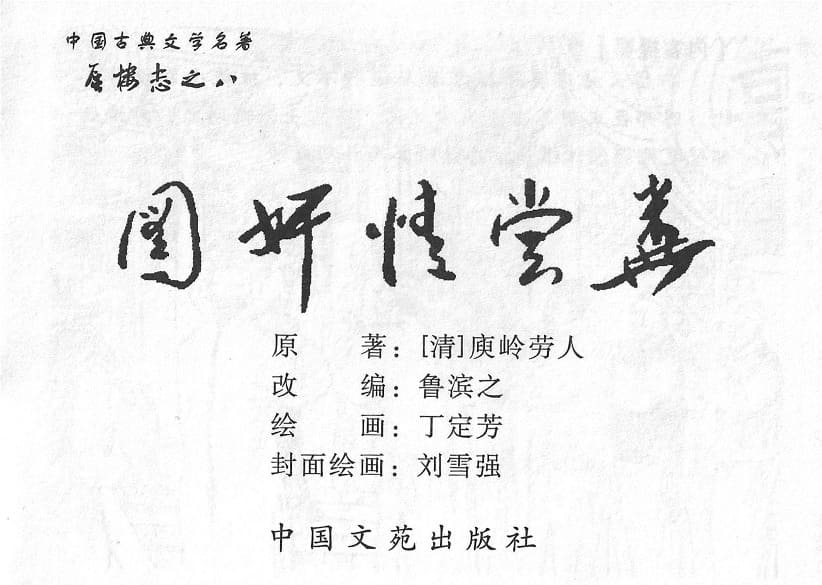 中国古典文学名著
蜃楼志之八
奸情尝粪
原著：[清]庾岭劳人
改编：鲁滨之
绘画：丁定芳
封面绘画：刘雪强
中国文苑出版社